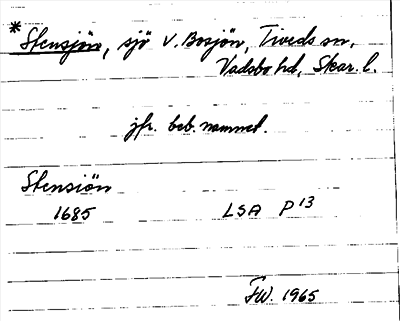 *Stensjön, sjö V. Bosjön, Tiveds sn,
Vadsbo hd, Skar. l.
jfr. beb. namnet.
Stensiön
1685 LSA P 13
FW. 1965